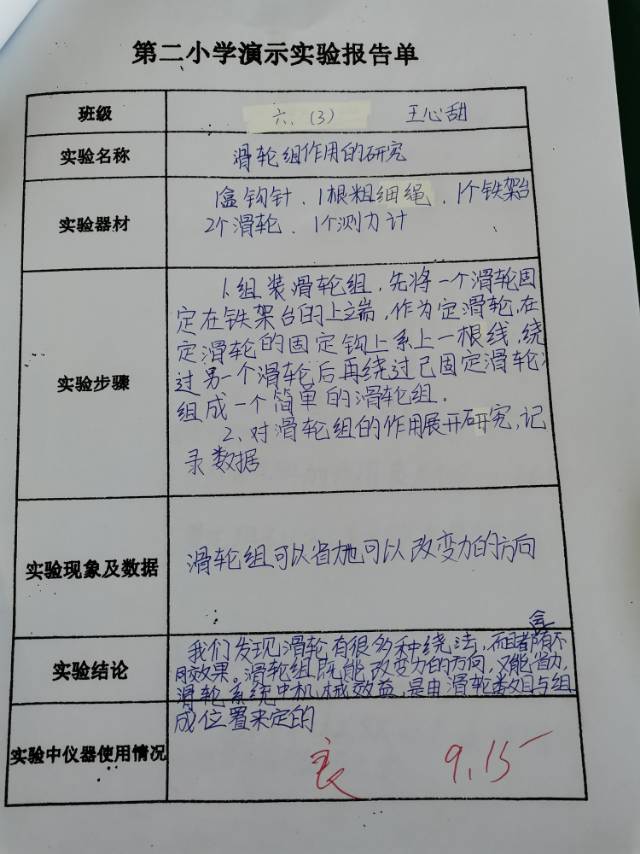 第二小学演示实验报告单
班级 六、(3) 王心甜
实验名称 滑轮组作用的研究
实验器材
1盒钩针、1根粗细绳、1个铁架台
2个滑轮、1个测力计
实验步骤
1.组装滑轮组,先将一个滑轮固
定在铁架台的上端,作为定滑轮,在
定滑轮的固定钩上系上一根线,绕
过另一个滑轮后再绕过已固定滑轮
组成一个简单的滑轮组.
2、对滑轮组的作用展开研究,记
录数据
实验现象及数据
滑轮组可以省力也可以改变力的方向
实验结论
我们发现滑轮有很多种绕法,而且都有不
同效果。滑轮组既能改变力的方向,又能省力,
滑轮系统中机械效益,是由滑轮数目与组
成位置来定的
实验中仪器使用情况
良 9.15